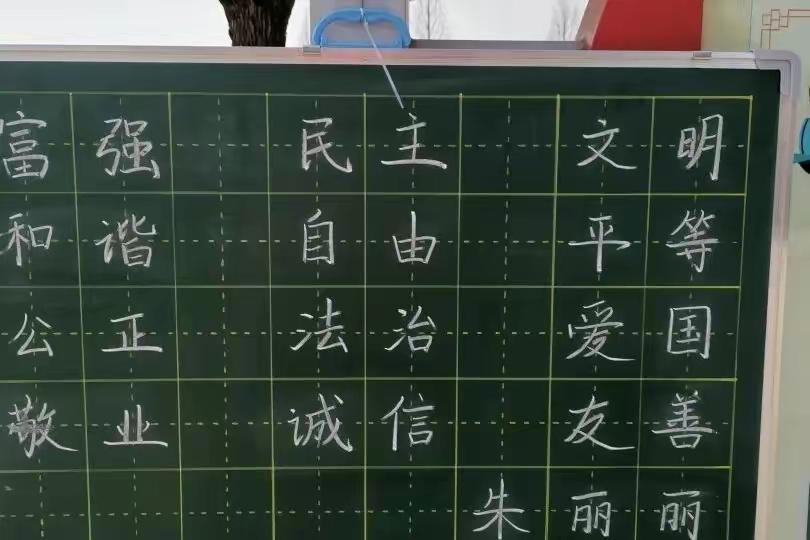 富强 民主 文明
和谐 自由 平等
公正 法治 爱国
敬业 诚信 友善
朱丽丽